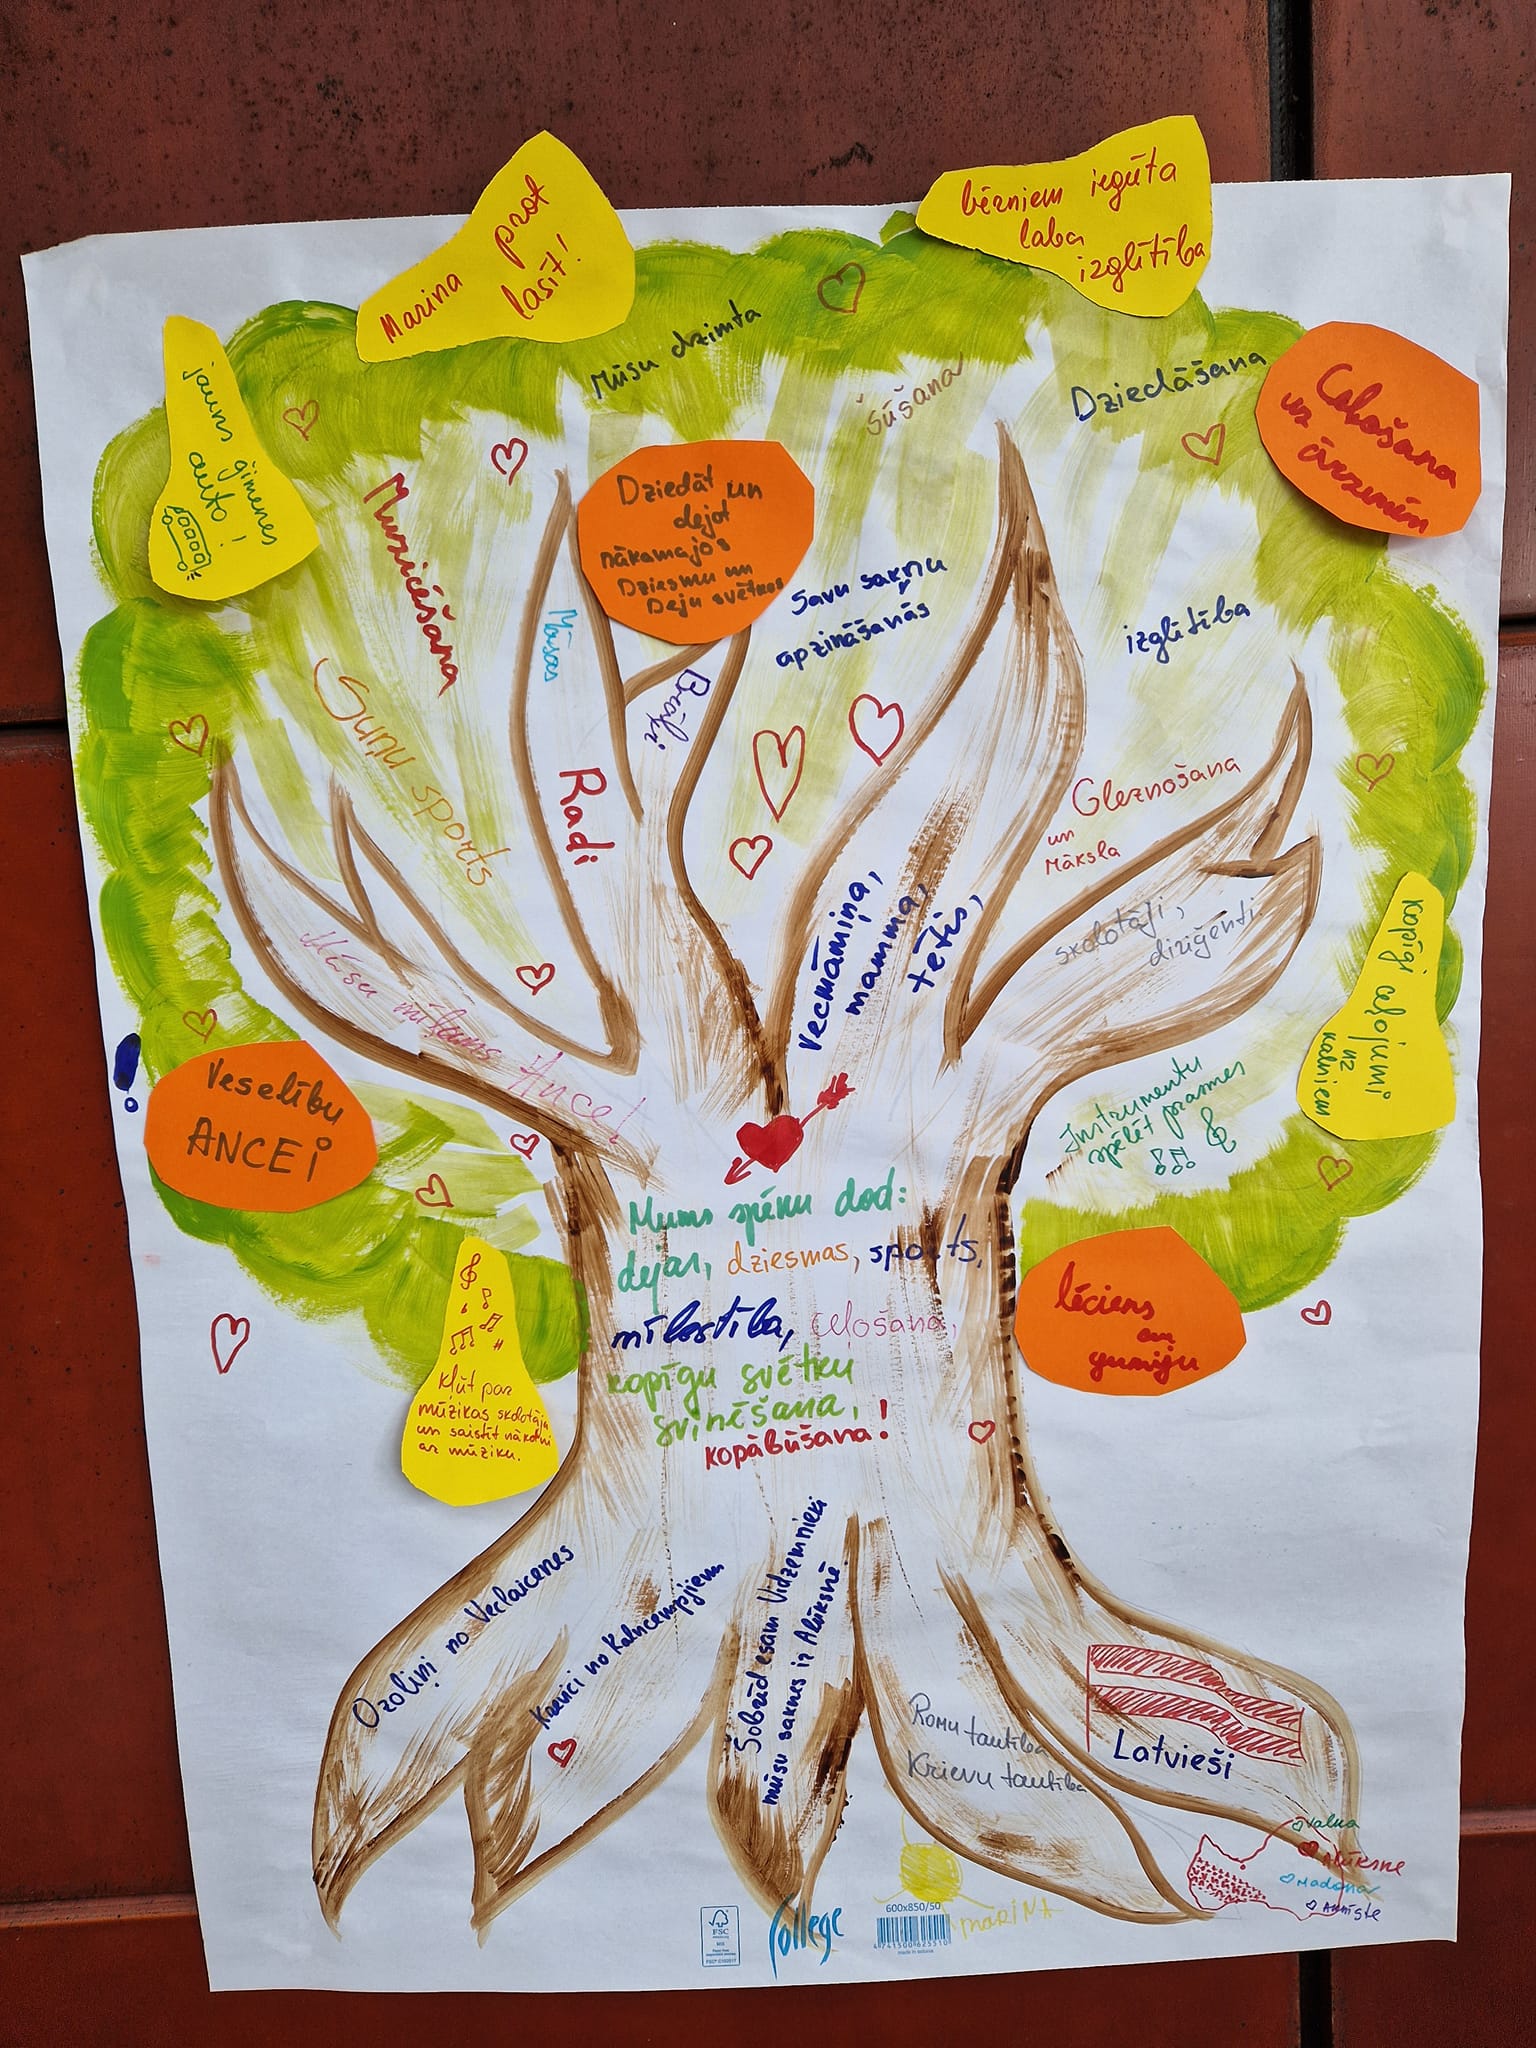 Marina prot
lasīt!
bērniem iegūta
laba
izglītība
jauns ģimenes
auto!
Mūsu dzimta
Šūšana
Dziedāšana
Ceļošana
uz
ārzemēm
Muzicēšana
Dziedāt un
dejot
nākamajos
Dziesmu un
Deju svētkos
Māsas
Brāļi
Savu sakņu
apzināšanās
izglītība
Suņu sports
Radi
Gleznošana
un
Māksla
vecmāmiņa,
mamma,
tētis,
skolotāji,
diriģenti
kopīgi ceļojumi
uz
kalniem
Mūsu mīļums Ance!
Veselību
ANCEI
Instrumentu
spēlēt prasmes
Mums spēku dod:
dejas, dziesmas, sports,
mīlestība, ceļošana,
kopīgu svētku
svinēšana,
kopābūšana!
lēciens
ar
gumiju
kļūt par
mūzikas skolotāju
un saistīt nākotni
ar mūziku.
Ozoliņi no Veclaicenes
no Kalncempjiem
Šobrīd esam Vidzemnieki
mūsu saknes ir Alūksnē
Romu tautība
Krievu tautība
Latvieši
Valka
Alūksne
Madona
FSC
College
600x850/50
4741500625510
MARINA